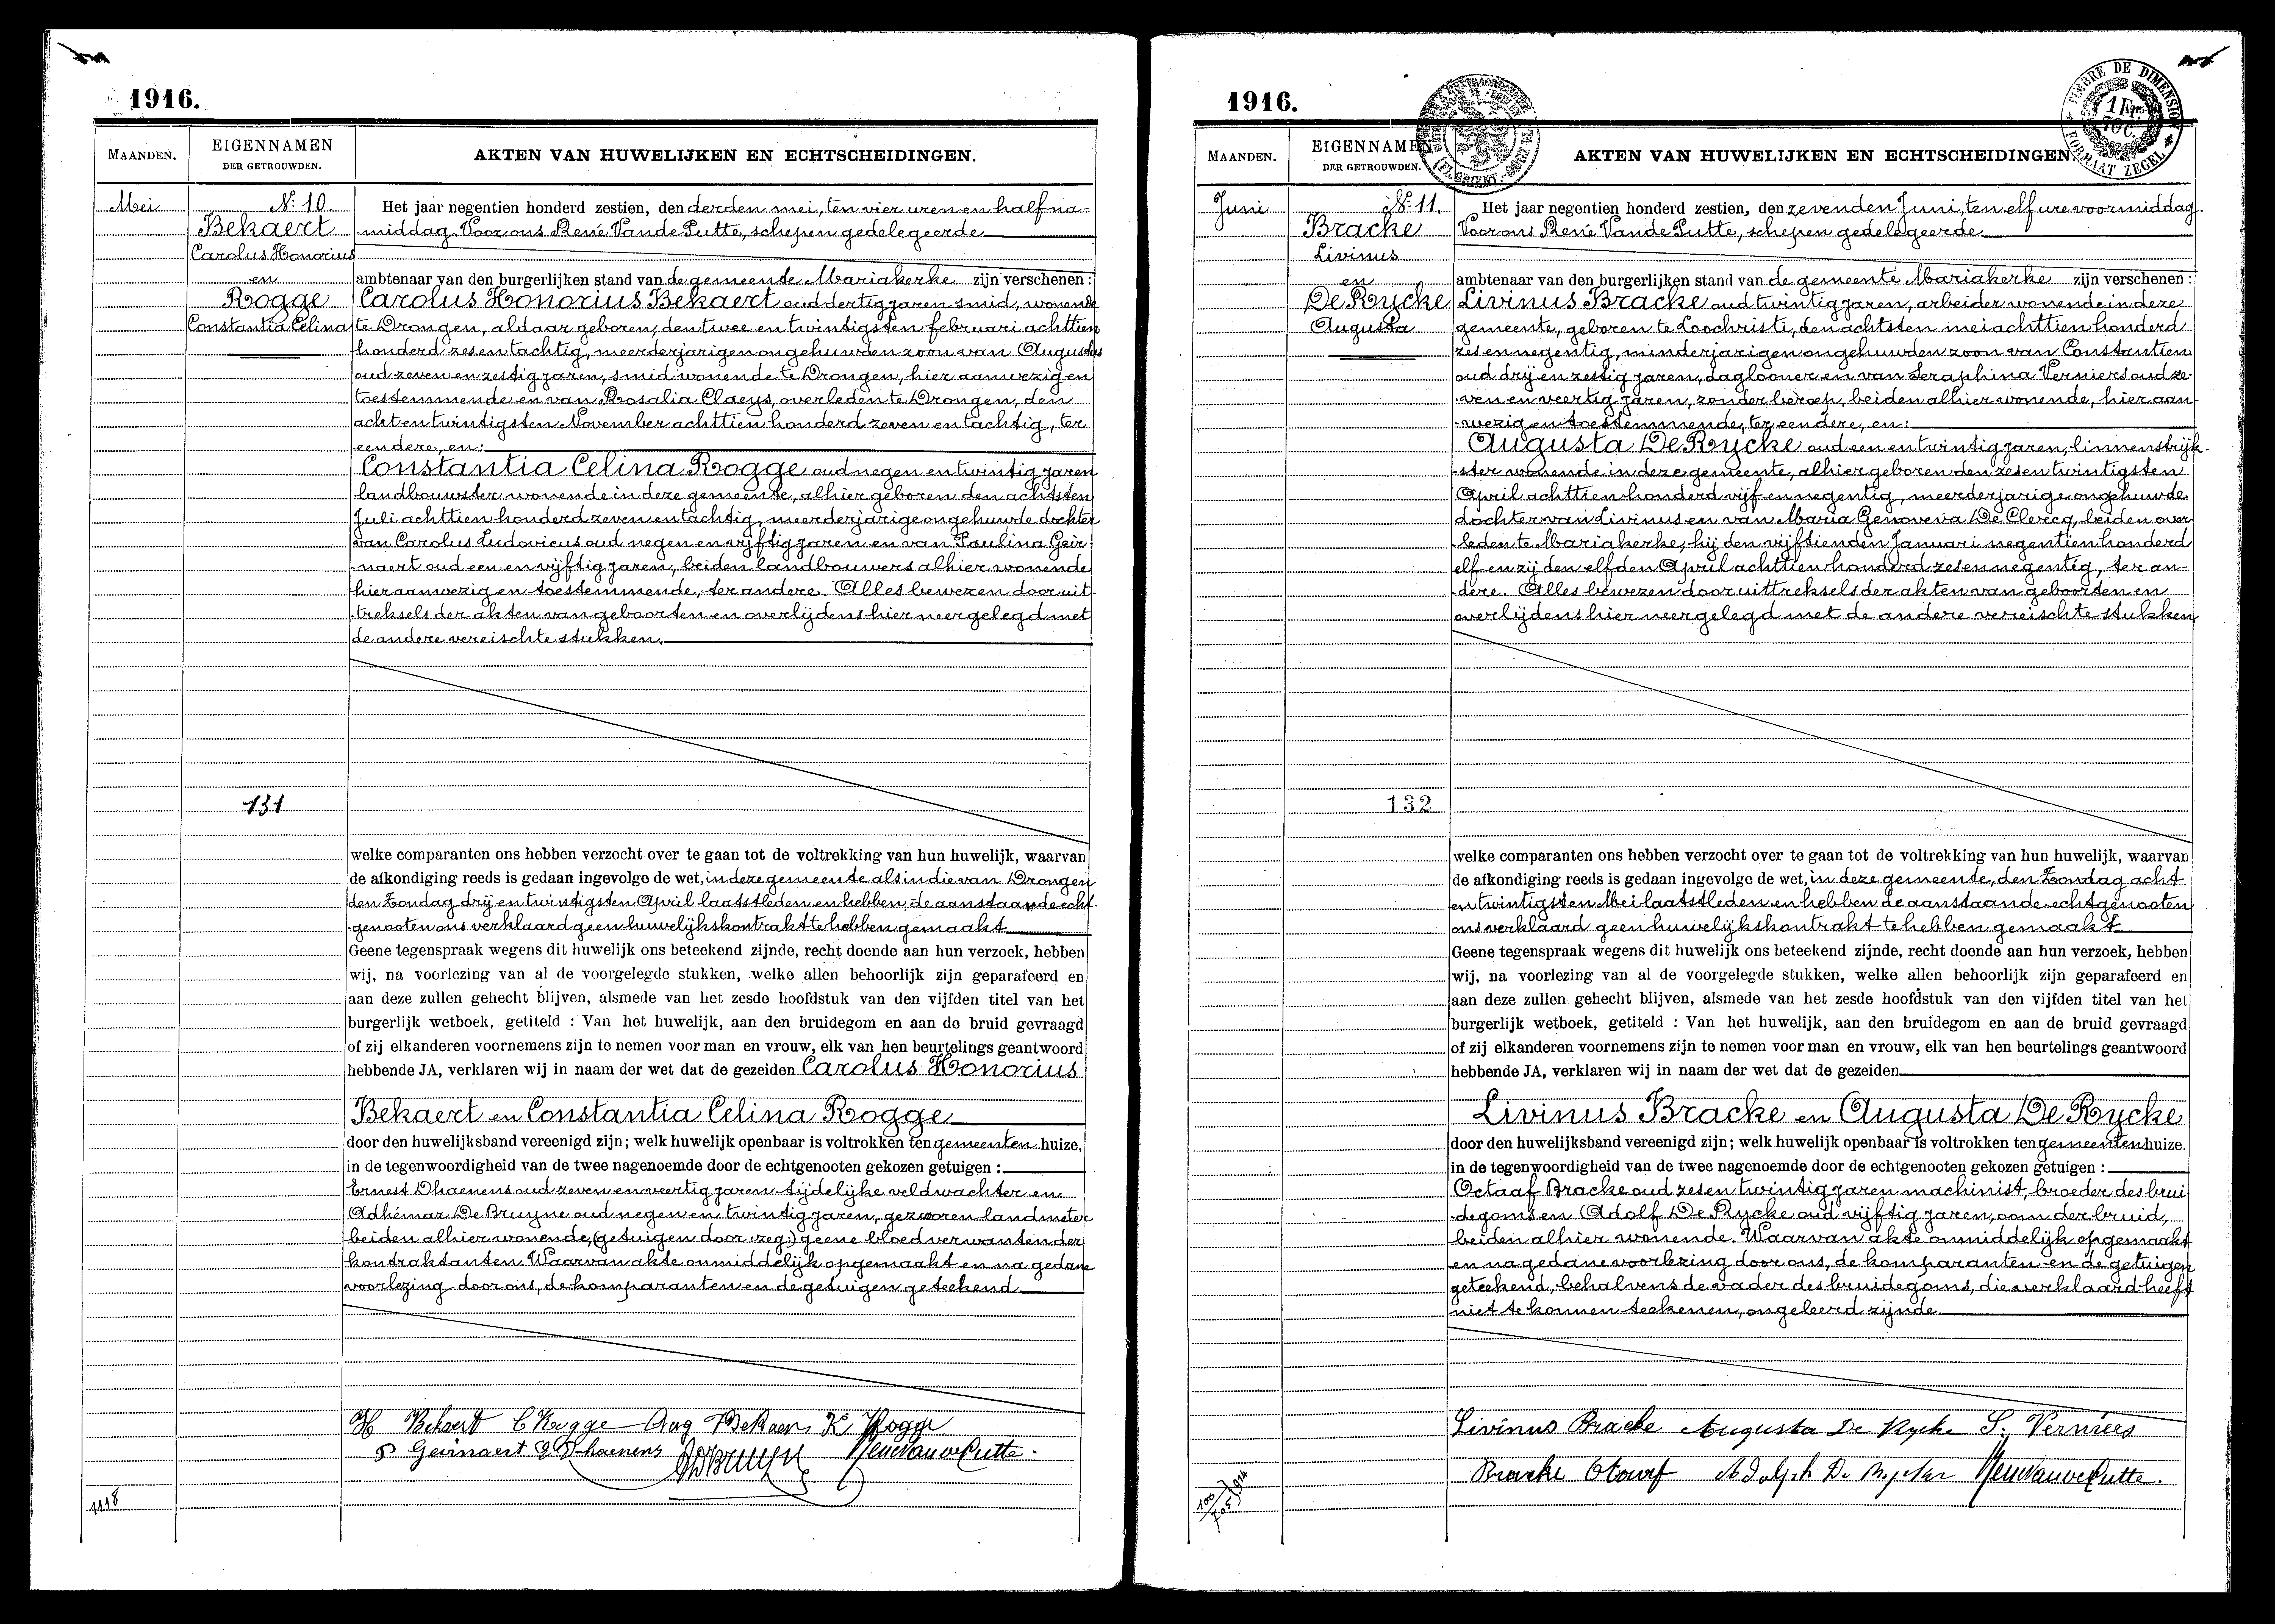 1916.
MAANDEN.
EIGENNAMEN
DER GETROUWDEN.
AKTEN VAN HUWELIJKEN EN ECHTSCHEIDINGEN.
Mei
N: 10
Bekaert
Carolus Honorius
en
Rogge
Constantia Celina
131
Het jaar negentien honderd zestien, den derden mei, ten vier uren en half na-
middag. Voor ons René Vande Putte, schepen gedelegeerde
ambtenaar van den burgerlijken stand van de gemeente Mariakerke zijn verschenen :
Carolus Honorius Bekaert oud dertig jaren smid, wonende
te Drongen, aldaar geboren, den twee en twintigsten februari achttien
honderd zes en tachtig, meerderjarigen ongehuwden zoon van Augustus
oud zeven en zestig jaren, smid wonende te Drongen, hier aanwezig en
toestemmende en van Rosalia Claeys, overleden te Drongen, den
acht en twintigsten November achttien honderd zeven en tachtig, ter
eendere, en:
Constantia Celina Rogge oud negen en twintig jaren
landbouwster wonende in deze gemeente, alhier geboren den achtsten
Juli achttien honderd zeven en tachtig, meerderjarige ongehuwde dochter
van Carolus Ludovicus oud negen en vijftig jaren en van Paulina Geir-
naert oud een en vijftig jaren, beiden landbouwers alhier wonende
hier aanwezig en toestemmende, ter andere. Alles bewezen door uit-
treksels der akten van geboorten en overlijdens hier neergelegd met
de andere vereischte stukken.
welke comparanten ons hebben verzocht over te gaan tot de voltrekking van hun huwelijk, waarvan
de afkondiging reeds is gedaan ingevolge de wet, in deze gemeente als in die van Drongen
den Zondag drij en twintigsten April laatstleden en hebben de aanstaande echt-
genooten ons verklaard geen huwelijkskontrakt te hebben gemaakt
Geene tegenspraak wegens dit huwelijk ons beteekend zijnde, recht doende aan hun verzoek, hebben
wij, na voorlezing van al de voorgelegde stukken, welke allen behoorlijk zijn geparafeerd en
aan deze zullen gehecht blijven, alsmede van het zesde hoofdstuk van den vijfden titel van het
burgerlijk wetboek, getiteld : Van het huwelijk, aan den bruidegom en aan de bruid gevraagd
of zij elkanderen voornemens zijn te nemen voor man en vrouw, elk van hen beurtelings geantwoord
hebbende JA, verklaren wij in naam der wet dat de gezeiden Carolus Honorius
Bekaert en Constantia Celina Rogge
door den huwelijksband vereenigd zijn; welk huwelijk openbaar is voltrokken ten gemeenten huize,
in de tegenwoordigheid van de twee nagenoemde door de echtgenooten gekozen getuigen :
Ernest Dhaenens oud zeven en veertig jaren tijdelijke veldwachter en
Adhémar De Bruyne oud negen en twintig jaren, gezworen landmeter
beiden alhier wonende, (getuigen door :zeg:) geene bloedverwanten der
kontraktanten. Waarvan akte onmiddelijk opgemaakt en na gedane
voorlezing door ons, de komparanten en de getuigen geteekend.
H Bekaert C Rogge Aug Bekaer K Rogge
P Geirnaert E Dhaenens ADBruyn René Vande Putte.
1118
1916.
TIMBRE DE DIMENSION
1 Fr.
FORMAAT ZEGEL
MAANDEN.
EIGENNAMEN
DER GETROUWDEN.
AKTEN VAN HUWELIJKEN EN ECHTSCHEIDINGEN.
Juni
N: 11.
Bracke
Livinus
en
De Rycke
Augusta
132
Het jaar negentien honderd zestien, den zevenden Juni, ten elf ure voormiddag.
Voor ons René Vande Putte, schepen gedelegeerde
ambtenaar van den burgerlijken stand van de gemeente Mariakerke zijn verschenen :
Livinus Bracke oud twintig jaren, arbeider wonende in deze
gemeente, geboren te Loochristi, den achtsten mei achttien honderd
zes en negentig, minderjarigen ongehuwden zoon van Constantien
oud drij en zestig jaren, daglooner en van Seraphina Verniers oud ze-
ven en veertig jaren, zonder beroep, beiden alhier wonende, hier aan-
wezig en toestemmende, ter eendere, en:
Augusta De Rycke oud een en twintig jaren, linnenstrijk-
ster wonende in deze gemeente, alhier geboren den zes en twintigsten
April achttien honderd vijf en negentig, meerderjarige ongehuwde
dochter van Livinus en van Maria Genoveva De Clercq, beiden over-
leden te Mariakerke, hij den vijftienden Januari negentien honderd
elf en zij den elfden April achttien honderd zes en negentig, ter an-
dere. Alles bewezen door uittreksels der akten van geboorten en
overlijdens hier neergelegd met de andere vereischte stukken
welke comparanten ons hebben verzocht over te gaan tot de voltrekking van hun huwelijk, waarvan
de afkondiging reeds is gedaan ingevolge de wet, in deze gemeente, den Zondag acht
en twintigsten Mei laatstleden en hebben de aanstaande echtgenooten
ons verklaard geen huwelijkskontrakt te hebben gemaakt
Geene tegenspraak wegens dit huwelijk ons beteekend zijnde, recht doende aan hun verzoek, hebben
wij, na voorlezing van al de voorgelegde stukken, welke allen behoorlijk zijn geparafeerd en
aan deze zullen gehecht blijven, alsmede van het zesde hoofdstuk van den vijfden titel van het
burgerlijk wetboek, getiteld : Van het huwelijk, aan den bruidegom en aan de bruid gevraagd
of zij elkanderen voornemens zijn te nemen voor man en vrouw, elk van hen beurtelings geantwoord
hebbende JA, verklaren wij in naam der wet dat de gezeiden
Livinus Bracke en Augusta De Rycke
door den huwelijksband vereenigd zijn; welk huwelijk openbaar is voltrokken ten gemeenten huize.
in de tegenwoordigheid van de twee nagenoemde door de echtgenooten gekozen getuigen :
Octaaf Bracke oud zes en twintig jaren machinist, broeder des brui-
degoms en Adolf De Rycke oud vijftig jaren, oom der bruid,
beiden alhier wonende. Waarvan akte onmiddelijk opgemaakt
en na gedane voorlezing door ons, de komparanten en de getuigen
geteekend, behalvens de vader des bruidegoms, die verklaard heeft
niet te konnen teekenen, ongeleerd zijnde.
Livinus Bracke Augusta De Rycke S. Verniers
Bracke Otaaf Adolph De Rycker René Vande Putte.